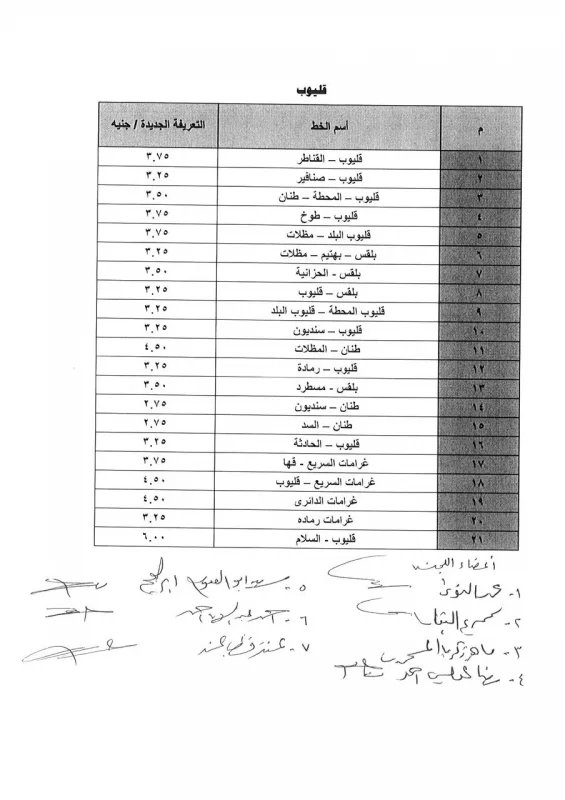 قليوب
م أسم الخط التعريفة الجديدة / جنيه
١ قليوب – القناطر ٣.٧٥
٢ قليوب – صنافير ٣.٢٥
٣ قليوب – المحطة – طنان ٣.٥٠
٤ قليوب – طوخ ٣.٧٥
٥ قليوب البلد – مظلات ٣.٧٥
٦ بلقس – بهتيم – مظلات ٣.٢٥
٧ بلقس - الحزانية ٣.٥٠
٨ بلقس – قليوب ٣.٢٥
٩ قليوب المحطة – قليوب البلد ٣.٢٥
١٠ قليوب – سنديون ٣.٢٥
١١ طنان – المظلات ٤.٥٠
١٢ قليوب – رمادة ٣.٢٥
١٣ بلقس - مسطرد ٣.٥٠
١٤ طنان – سنديون ٢.٧٥
١٥ طنان – السد ٢.٧٥
١٦ قليوب – الحادثة ٣.٢٥
١٧ غرامات السريع - قها ٣.٧٥
١٨ غرامات السريع – قليوب ٤.٥٠
١٩ غرامات الدائرى ٤.٥٠
٢٠ غرامات رماده ٣.٢٥
٢١ قليوب - السلام ٦.٠٠
أعضاء اللجنة
١-
٢-
٣-
٤-
٥-
٦-
٧-